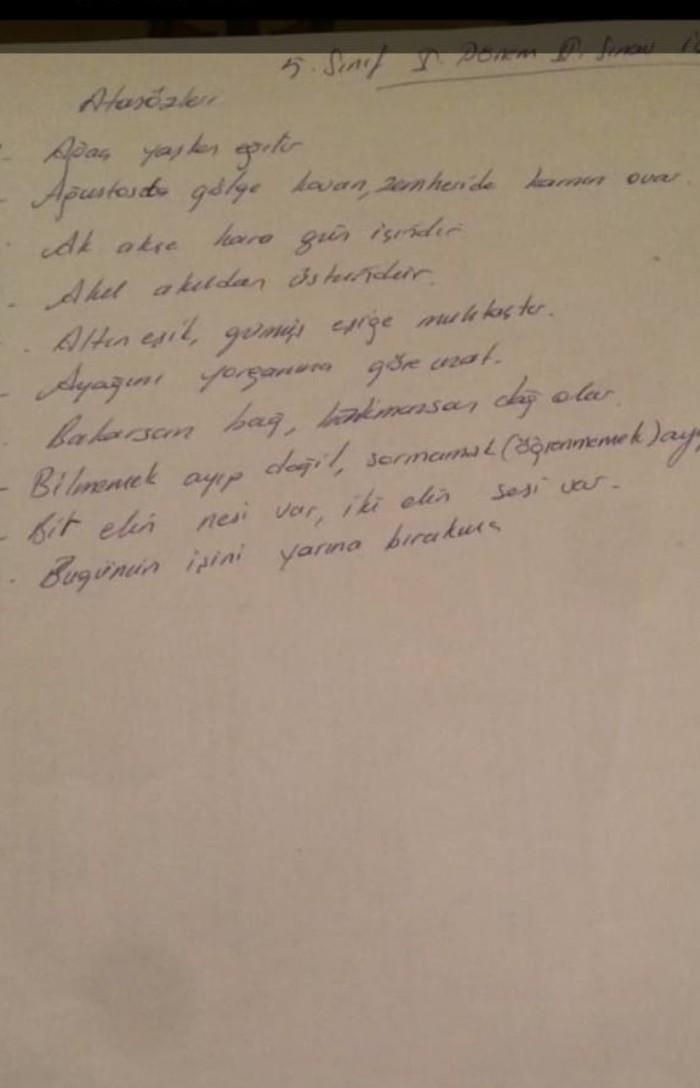 5. Sınıf I. Dönem II. Sınav
Atasözleri
- Ağaç yaşken eğilir
- Ağustosta gölge kovan, zemheride karnın ovar.
- Ak akçe kara gün içindir
- Akıl akıldan üstündür.
- Altın eşik, gümüş eşiğe muhtaçtır.
- Ayağını yorganına göre uzat.
Bakarsan bağ, bakmazsan dağ olur.
- Bilmemek ayıp değil, sormamak (öğrenmemek) ayı
- Bir elin nesi var, iki elin sesi var.
- Bugünün işini yarına bırakma